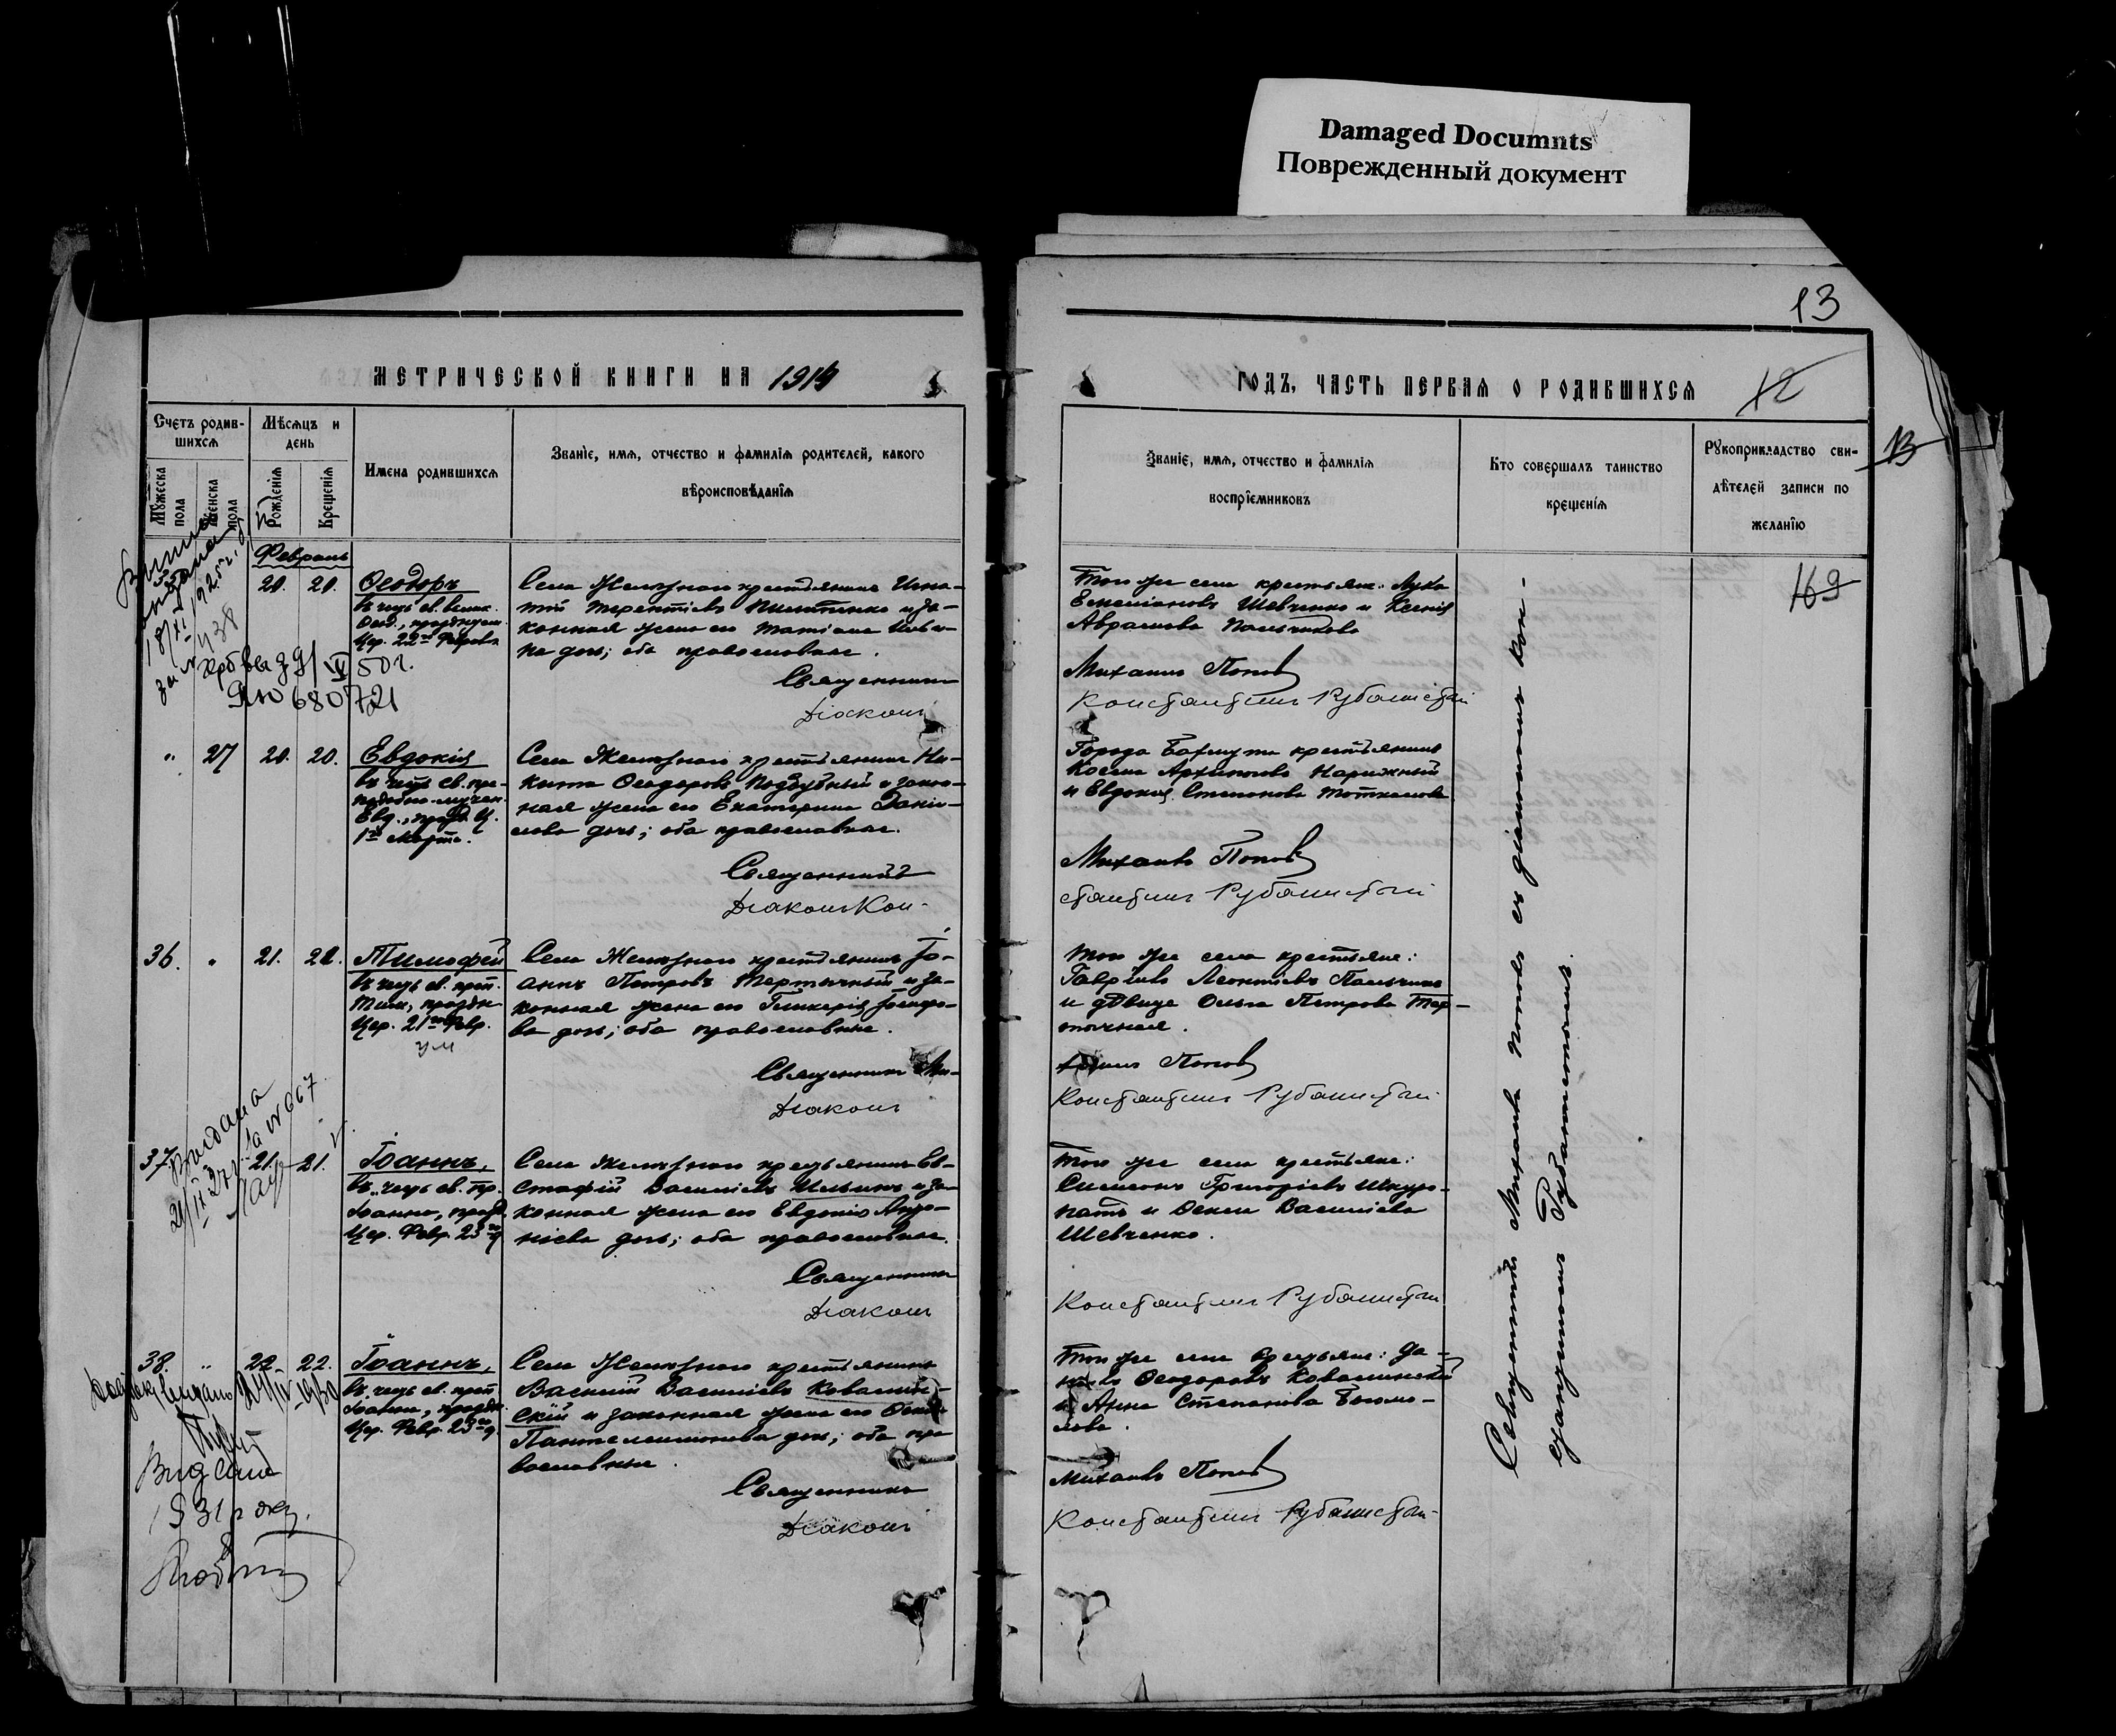 Damaged Documnts
Поврежденный документ
13
МЕТРИЧЕСКОЙ КНИГИ НА 1914
ГОДЪ, ЧАСТЬ ПЕРВАЯ О РОДИВШИХСЯ
12
13
Счетъ родив-
шихся
Мужеска
пола
Женска
пола
Мѣсяцъ и
день
Рожденія
Крещенія
Имена родившихся
Званіе, имя, отчество и фамилія родителей, какого
вѣроисповѣданія
Званіе, имя, отчество и фамилія
воспріемниковъ
Кто совершалъ таинство
крещенія
Рукоприкладство сви-
дѣтелей записи по
желанію
169
Февраль
35 20. 20. Ѳеодоръ
въ честь св. велик.
Ѳеод., празднуем.
Цер. 22го Февраля
Села Желѣзнаго крестьянинъ Игна-
тій Терентіевъ и за-
конная жена его Татіана
на дочь; оба православные.
Священникъ
Діаконъ
Того же села крестьяне: Лука
Емеліановъ Шевченко и Ксенія
Авраамова Пальчикова
Михаилъ Поповъ
Константинъ Рубанистый
18/XI 1925 г.
за № 438
9/VI 50 г.
680721
" 27 20. 20. Евдокія
въ честь св. пре-
подобно-мучен.
Евд., празд. Ц.
1го Марта.
Села Желѣзнаго крестьянинъ Ни-
кита Ѳеодоровъ Поддубный и закон-
ная жена его Екатерина Даніи-
лова дочь; оба православные.
Священникъ
Діаконъ Кон-
Города Бахмута крестьянинъ
Косма Архиповъ Нарижный
и Евдокія Степанова
Михаилъ Поповъ
стантинъ Рубанистый
36. " 21. 21. Тимоѳей
въ честь св. преп.
Тим., праздн.
Цер. 21го Февр.
ум
Села Желѣзнаго крестьянинъ Іо-
аннъ Петровъ Тертычный и за-
конная жена его Гликерія Ісидоро-
ва дочь; оба православные.
Священникъ Ми-
Діаконъ
Того же села крестьяне:
Гавріилъ Леонтіевъ Пальчикъ
и дѣвица Ольга Петрова Тер-
тычная.
хаилъ Поповъ
Константинъ Рубанистый
37. 21. 21. Іоаннъ,
въ честь св. пр.
Іоанна, празд.
Цер. Февр. 23го
Села Желѣзнаго крестьянинъ Ев-
стафій Василіевъ Шильинъ и за-
конная жена его Евдокія Андро-
ніева дочь; оба православные.
Священникъ
Діаконъ
Того же села крестьяне:
Симеонъ Григоріевъ Шкуро-
патъ и Васильева
Шевченко.
Константинъ Рубанистый
38. " 22. 22. Іоаннъ,
въ честь св. преп.
Іоанна, праздн.
Цер. Февр. 23го
Села Желѣзнаго крестьянинъ
Василій Василіевъ Ковалин-
скій и законная жена его
Пантелеимонова дочь; оба пра
вославные.
Священникъ
Діаконъ
Того же села крестьяне: Да-
ніилъ Ѳеодоровъ Ковалинскій
и Анна Степанова
Михаилъ Поповъ
Константинъ Рубанистый
1931 року.
Священникъ Михаилъ Поповъ съ діакономъ Кон-
стантиномъ Рубанистымъ.